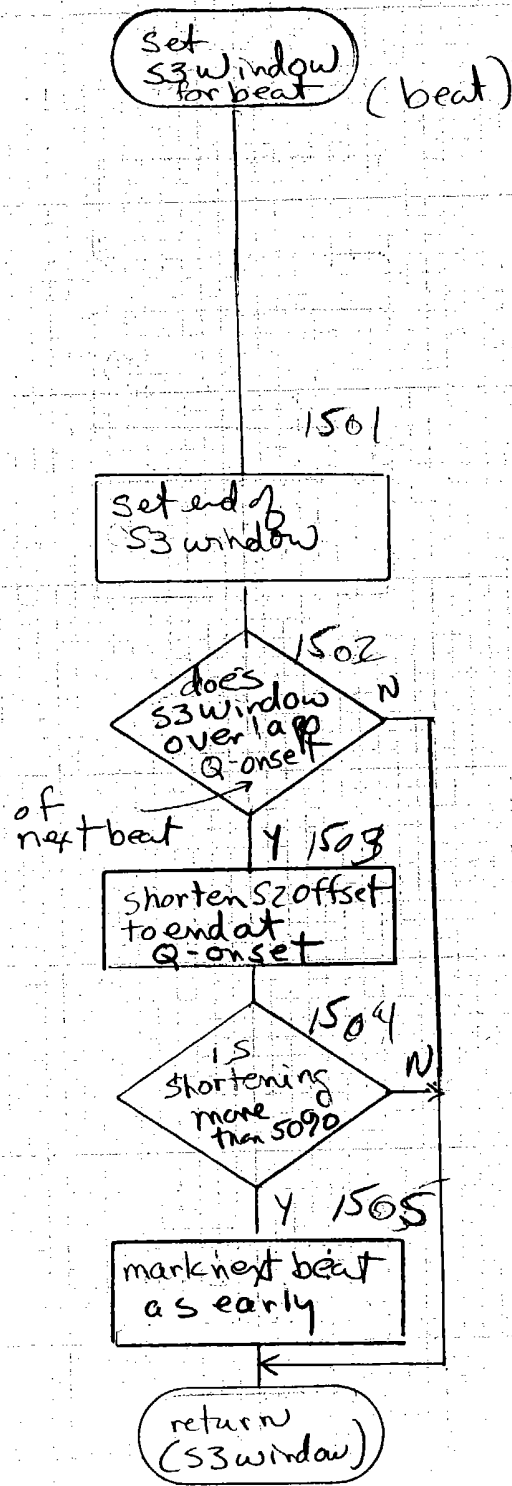 set
S3 window
for beat
(beat)
1501
set end of
S3 window
1502
does
S3 window
overlap
Q-onset
N
of
next beat
Y 1503
shorten S2 offset
to end at
Q-onset
1504
is
shortening
more
than 50%
N
Y 1505
mark next beat
as early
return
(S3 window)